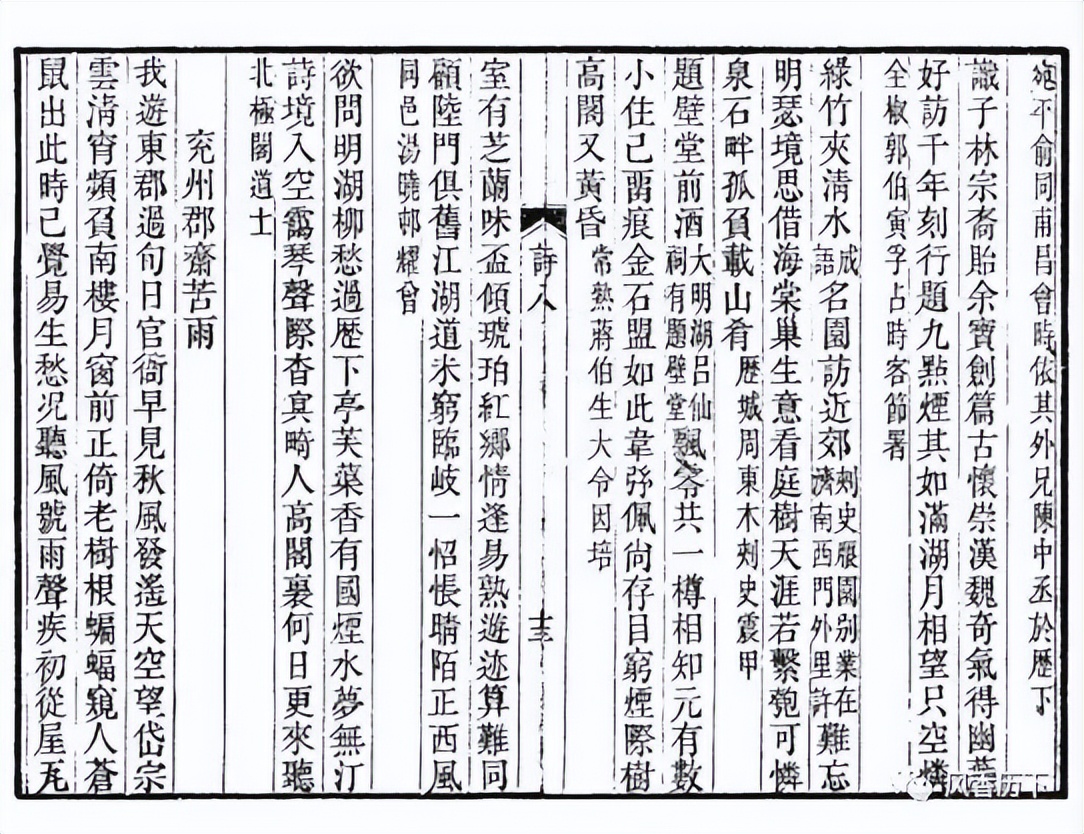 宛平俞同甫昌會時依其外兄陳中丞於歷下
識子林宗裔貽余寶劍篇古懷崇漢魏奇氣得幽燕
好訪千年刻行題九點煙其如滿湖月相望只空憐
全椒郭伯寅孚占時客節署
綠竹夾清水成語名園訪近郊刺史朖園別業在濟南西門外里許難忘
明瑟境思借海棠巢生意看庭樹天涯若繫匏可憐
泉石畔孤負載山肴歷城周東木刺史震甲
題壁堂前酒大明湖呂仙祠有題壁堂飄零共一樽相知元有數
小住己畱痕金石盟如此韋弦佩尙存目窮煙際樹
高閣又黃昏常熟蔣伯生大令因培
詩八
十三
室有芝蘭味盃傾琥珀紅鄉情逢易熟遊迹算難同
顧陸門俱舊江湖道未窮臨岐一怊悵晴陌正西風
同邑湯曉邨耀曾
欲問明湖柳愁過歷下亭芙蕖香有國煙水夢無汀
詩境入空靄琴聲際杳冥畸人高閣裏何日更來聽
北極閣道士
兖州郡齋苦雨
我遊東郡過旬日官衙早見秋風發遙天空望岱宗
雲淸宵頻負南樓月窗前正倚老樹根蝙蝠窺人蒼
鼠出此時已覺易生愁况聽風號雨聲疾初從屋瓦
风香历下